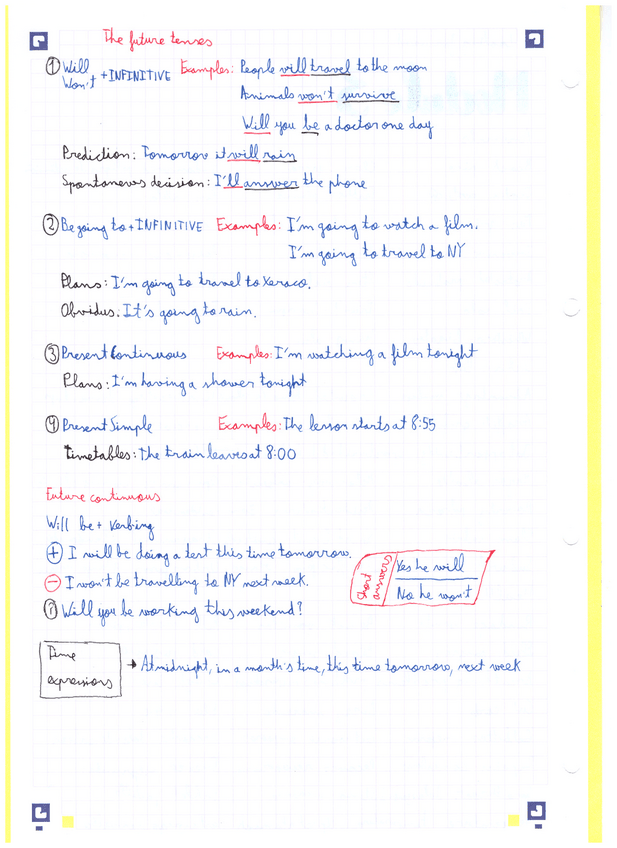 The future tenses
① Will
Won't + INFINITIVE Examples: People will travel to the moon
Animals won't survive
Will you be a doctor one day
Prediction: Tomorrow it will rain
Spontaneous decision: I'll answer the phone
② Be going to + INFINITIVE Examples: I'm going to watch a film.
I'm going to travel to NY
Plans: I'm going to travel to Xeraco.
Obvidus: It's going to rain.
③ Present Continuous Examples: I'm watching a film tonight
Plans: I'm having a shower tonight
④ Present Simple Examples: The lesson starts at 8:55
Timetables: The train leaves at 8:00
Future continuous
Will be + Verbing
⊕ I will be doing a test this time tomorrow.
⊖ I won't be travelling to NY next week.
? Will you be working this weekend?
short answers
Yes he will
No he won't
Time expressions → At midnight, in a month's time, this time tomorrow, next week